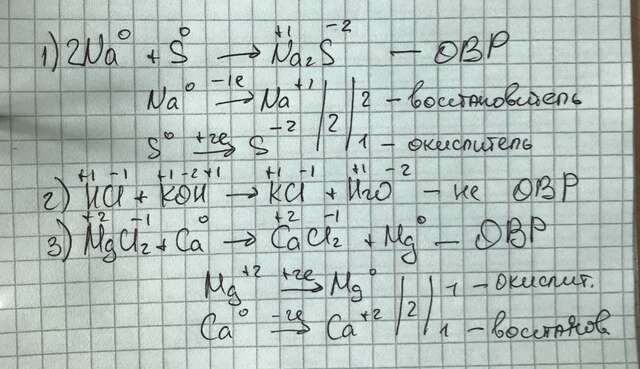 1) 2Na⁰ + S⁰ → Na₂⁺¹S⁻² — ОВР
Na⁰ –1e → Na⁺¹ | | 2 – восстановитель
S⁰ +2e → S⁻² | 2 | 1 – окислитель
2) H⁺¹Cl⁻¹ + K⁺¹O⁻²H⁺¹ → K⁺¹Cl⁻¹ + H⁺¹2O⁻² – не ОВР
3) Mg⁺²Cl₂⁻¹ + Ca⁰ → Ca⁺²Cl₂⁻¹ + Mg⁰ – ОВР
Mg⁺² +2e → Mg⁰ | | 1 – окислит.
Ca⁰ –2e → Ca⁺² | 2 | 1 – восстанов